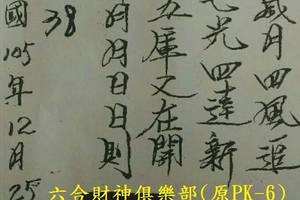 歲月四風追
七光四達新
五庫又在開
月月日日則
38
國105年12月25
六合財神俱樂部(原PK-6)